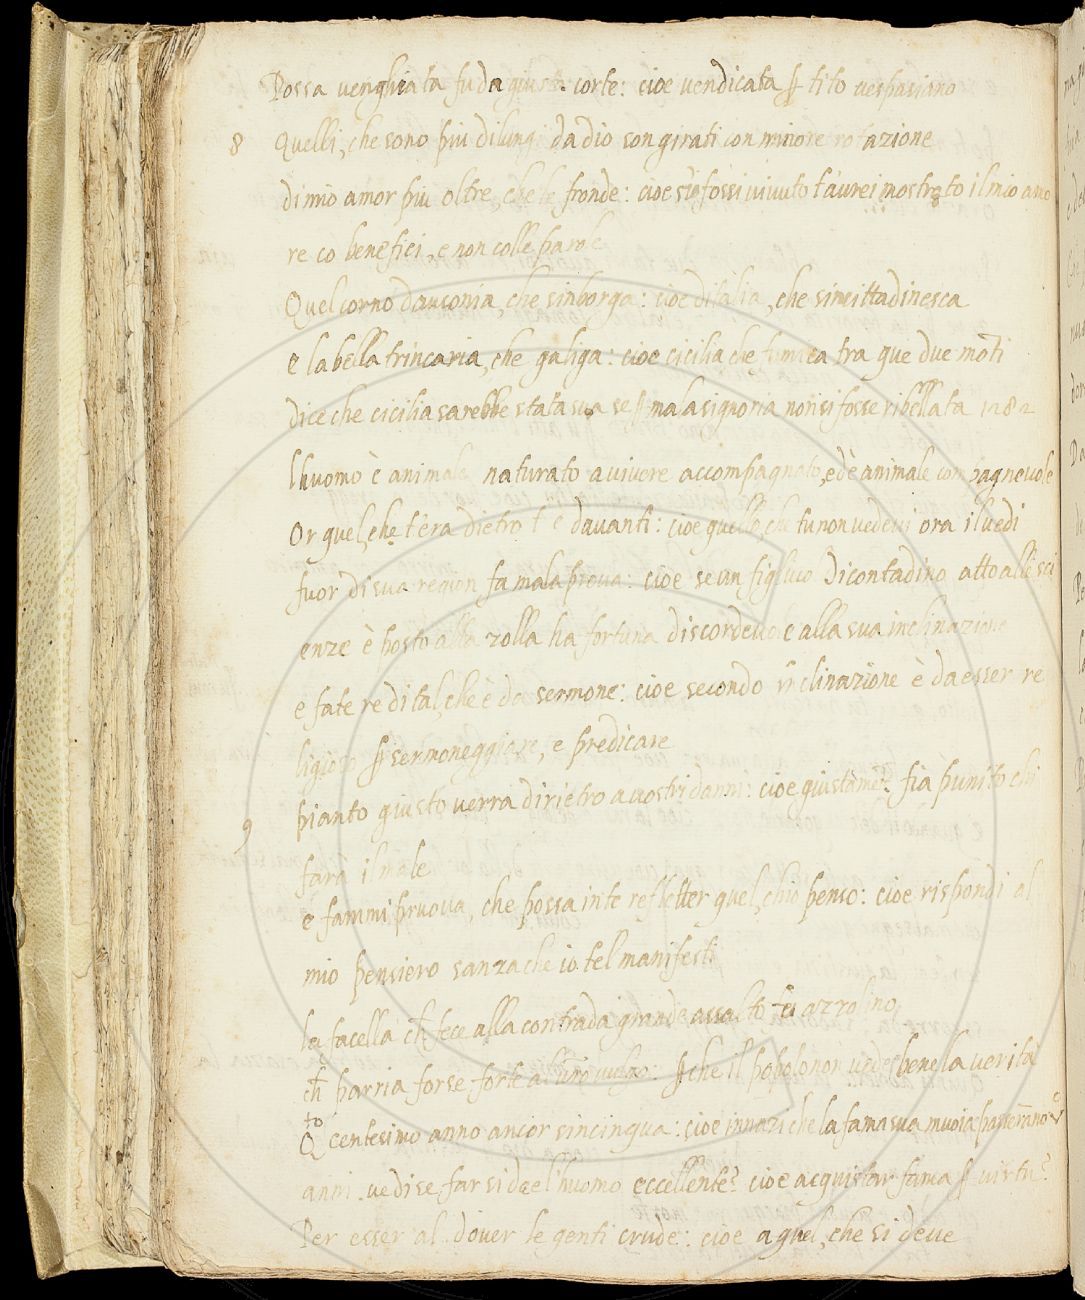 Possa venghiata fu da giusta corte: cioe vendicata ꝑ tito vespasiano
8 Quelli, che sono piu dilungi da dio son girati con minore rotazione
di mio amor piu oltre, che le fronde: cioe s'io fossi vivuto t'aurei mostrato il mio amo
re co benefici, e non colle parole
Quel corno d'ausonia, che s'inborga: cioe d'italia, che s'incittadinesca
e la bella trincaria, che galiga: cioe cicilia che fumica tra que due mōti
dice che cicilia sarebbe stata sua se ꝑ mala signoria non si fosse ribellata 1282
l'huomo è animale naturato a vivere accompagnato, ed è animale compagnevole
Or quel, che t'era dietro t'è davanti: cioe quello, che tu non vedevi ora il vedi
fuor di sua region fa mala prova: cioe se un figliuo di contadino atto alle sci
enze è posto alla zolla ha fortuna discordevole alla sua inclinazione
e fate re di tal, che è da sermone: cioe secondo inclinazione è da esser re
ligioso ꝑ sermoneggiare, e predicare
9 pianto giusto verra dirietro a vostri danni: cioe giustamēte fia punito chi
fara il male
e fammi pruova, che possa in te refletter quel, ch'io penso: cioe rispondi al
mio pensiero sanza che io tel manifesti
la facella ch̄ fece alla contrada grande assalto fu azzolino
ch̄ parria forse forte al vr̄o vulgo: ꝑche il popolo non vede bene la verità
Qto centesimo anno ancor s'incinqua: cioe innāzi che la fama sua muoia passerāno 5 c
anni. vedi se far si dee l'huomo eccellente? cioe acquistar fama ꝑ virtu?
Per esser al dover le genti crude: cioe a quel, che si deve